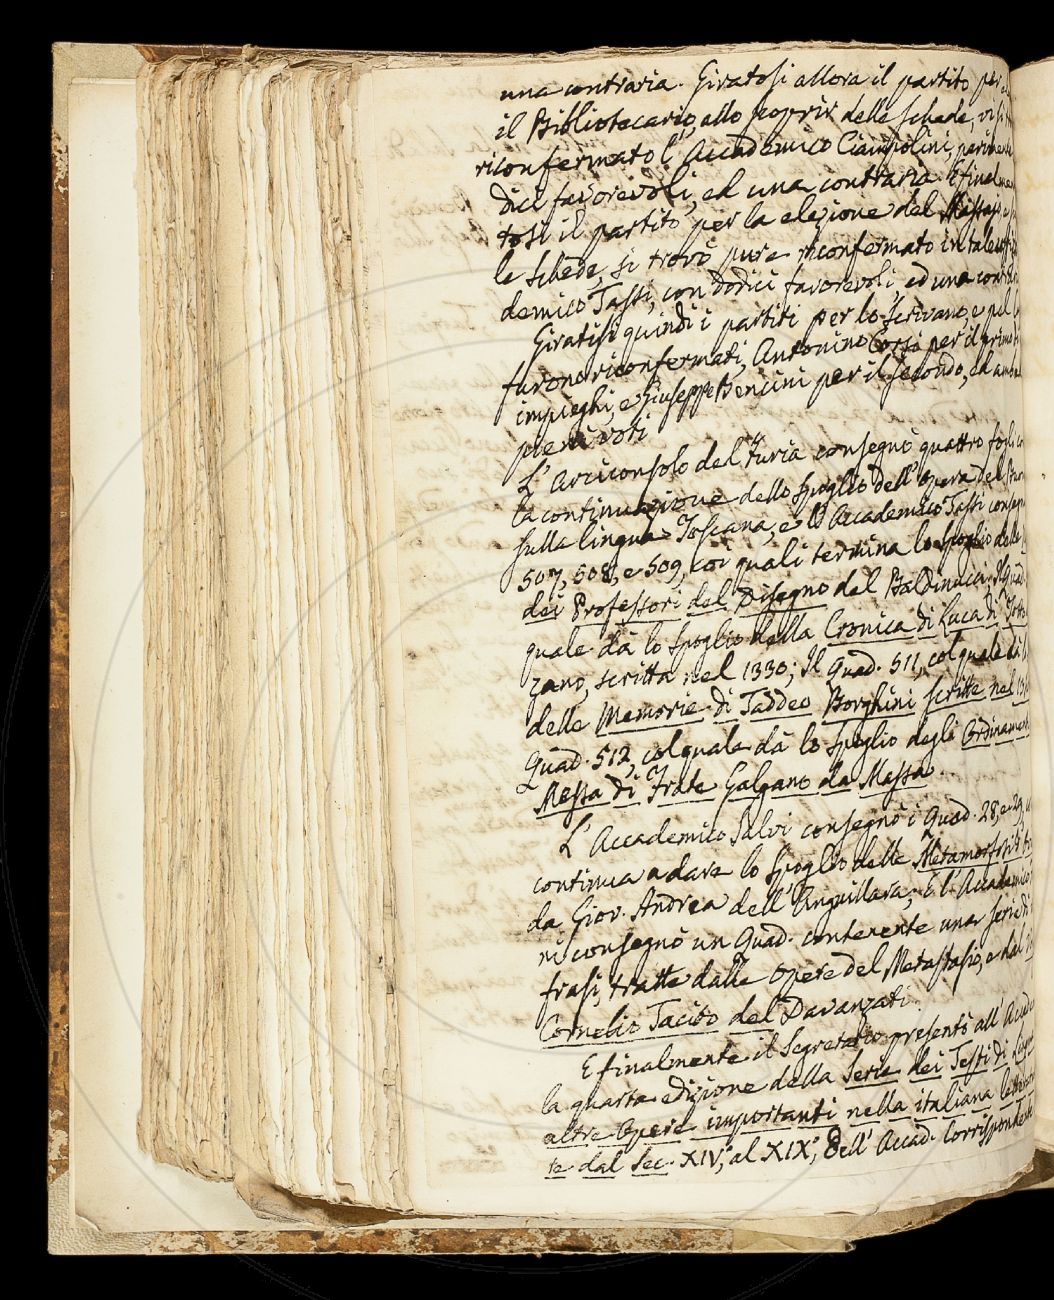 una contraria. Giratosi allora il partito per
il Bibliotecario, allo scoprir delle schede, vi si
riconfermato l'Accademico Ciampolini, parimente
dici favorevoli, ed una contraria. E finalmen
tosi il partito per la elezione del Massajo
le schede, si trovò pure riconfermato in tale ufiz
demico Tassi, con dodici favorevoli, ed una contr
Giratisi quindi i partiti per lo Scrivano, e pel
furono riconfermati, Antonino Corso per il primo
impieghi, e Giuseppe Bencini per il secondo, ed amb
pieni voti
L'Arciconsolo del Furia consegnò quattro fogli
la continuazione dello spoglio dell'Opera del
sulla lingua Toscana, e l'Accademico Tassi conseg
507, 508, e 509, coi quali termina lo spoglio delle
dei Professori del Disegno del Baldinucci. Il Quad.
quale dà lo spoglio della Cronica di Luca di
zano, scritta nel 1330; Il Quad. 511, col quale dà
delle Memorie di Taddeo Borghini scritte nel
Quad. 512, col quale dà lo spoglio degli Ordinament
Messa di Frate Galgano da Massa.
L'Accademico Salvi consegnò i Quad. 28, e 29,
continua a dare lo spoglio delle Metamorfosi
da Giov. Andrea dell'Anguillara; E l'Accademico
ni consegnò un Quad. contenente una serie di
frasi, tratte dalle opere del Metastasio, e dal
Cornelio Tacito del Davanzati.
E finalmente il Segretario presentò all'Accad
la quarta edizione della Serie dei Testi di Lingu
altre Opere importanti nella italiana letter
te dal Sec. XIV, al XIX, Dell'Accad. Corrisponden